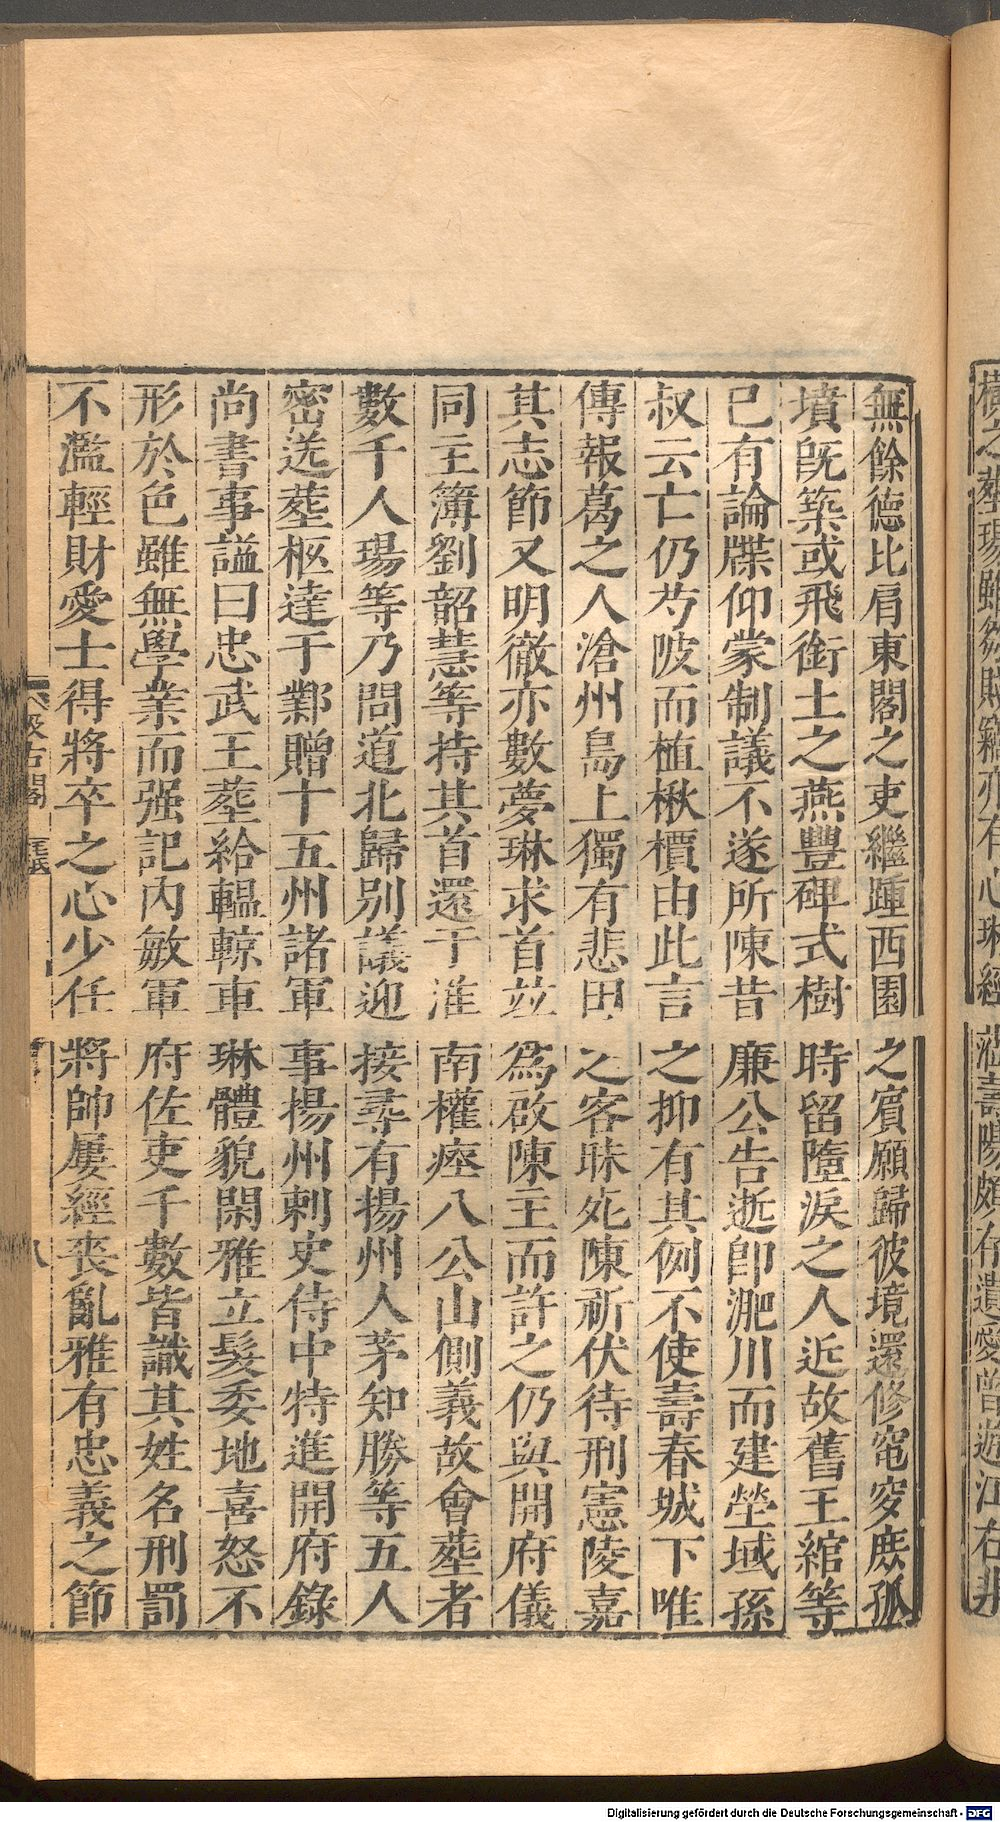 橫之葬瑒雖芻賤竊亦有心琳經涖壽陽頗存遺愛曾遊江右非
無餘德比肩東閣之吏繼踵西園之賓願歸彼境還修窀穸庶孤
墳旣築或飛銜土之燕豐碑式樹時留墮淚之人近故舊王綰等
已有論牒仰蒙制議不遂所陳昔廉公告逝卽淝川而建塋域孫
叔云亡仍芍陂而植楸檟由此言之抑有其例不使壽春城下唯
傳報葛之人滄州島上獨有悲田之客昧死陳祈伏待刑憲陵嘉
其志節又明徹亦數夢琳求首並爲啟陳主而許之仍與開府儀
同主簿劉韶慧等持其首還于淮南權瘞八公山側義故會葬者
數千人瑒等乃問道北歸別議迎接尋有揚州人茅知勝等五人
密送葬柩達于鄴贈十五州諸軍事揚州刺史侍中特進開府錄
尚書事謚曰忠武王葬給轀輬車琳體貌閑雅立髮委地喜怒不
形於色雖無學業而强記內敏軍府佐吏千數皆識其姓名刑罰
不濫輕財愛士得將卒之心少任將帥屢經喪亂雅有忠義之節
汲古閣
毛氏
八
Digitalisierung gefördert durch die Deutsche Forschungsgemeinschaft - DFG